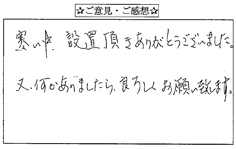 ☆ご意見・ご感想☆
寒い中、設置頂きありがとうございました。
又、何かありましたら、よろしくお願い致します。